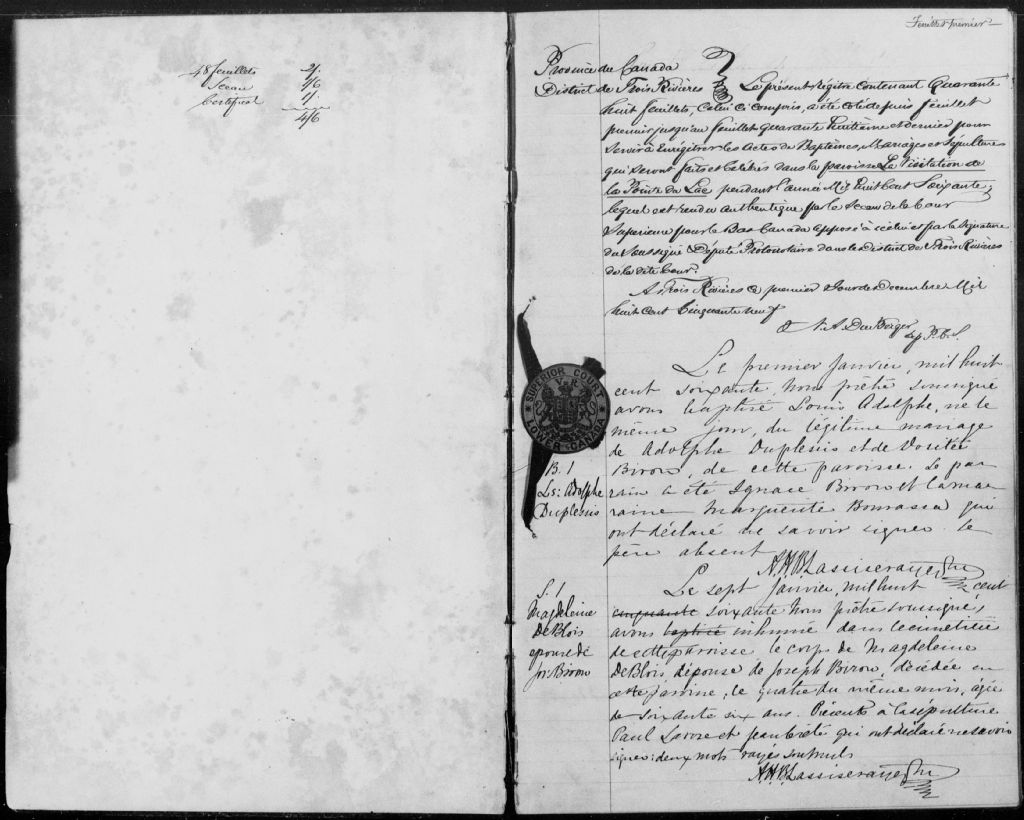 48 feuillets 2/.
Sceau 1/6
Certificat 1/.
4/6
Feuillet premier
Province du Canada
District de Trois Rivières
Le présent Régitre contenant Quarante
huit feuillets, celui ci compris, a été coté depuis feuillet
premier jusqu'au feuillet quarante huitième et dernier pour
servir à Enrégitrer les Actes de Baptêmes, Mariages et Sépultures
qui seront faits et célébrés dans la paroisse La Visitation de
la Pointe du Lac pendant l'année Mil huit Cent Soixante;
lequel est rendu authentique par le Sceau de la Cour
Supérieure pour le Bas Canada apposé à icelui et par la Signature
du Soussigné Député Protonotaire dans le District de Trois Rivières
de la dite Cour.
A Trois Rivières ce premier Jour de Décembre Mil
huit cent Cinquante neuf
Dep P. C. S.
SUPERIOR COURT
LOWER CANADA
B. 1
Ls: Adolphe
Duplessis
Le premier Janvier, mil huit
cent soixante, Nous prêtre soussigné
avons baptisé Louis Adolphe, né le
même jour, du légitime mariage
de Adolphe Duplessis et de
Birow, de cette paroisse. Le par
rain a été Ignace Birow et la mar
raine Marguerite Bourassa qui
ont déclaré ne savoir signer. le
père absent
S. 1
Magdeleine
DeBlois
epouse de
Jos: Birow
Le sept Janvier, mil huit cent
cinquante soixante Nous prêtre soussigné,
avons baptisé inhumé dans le cimetière
de cette paroisse le corps de Magdeleine
DeBlois, épouse de Joseph Birow, décédée en
cette paroisse, le quatre du même mois, âgée
de soixante six ans. Présents à la sépulture
Paul et qui ont déclaré ne savoir
signer: deux mots rayés sont nuls